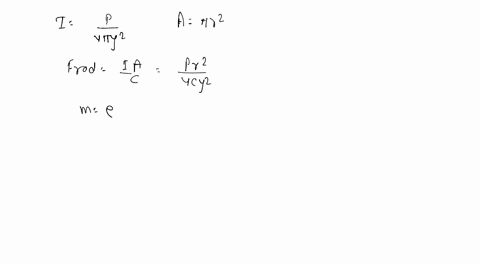 I = P / 4πy² A = πr²
Frad = IA / C = Pr² / 4cy²
m = ρ